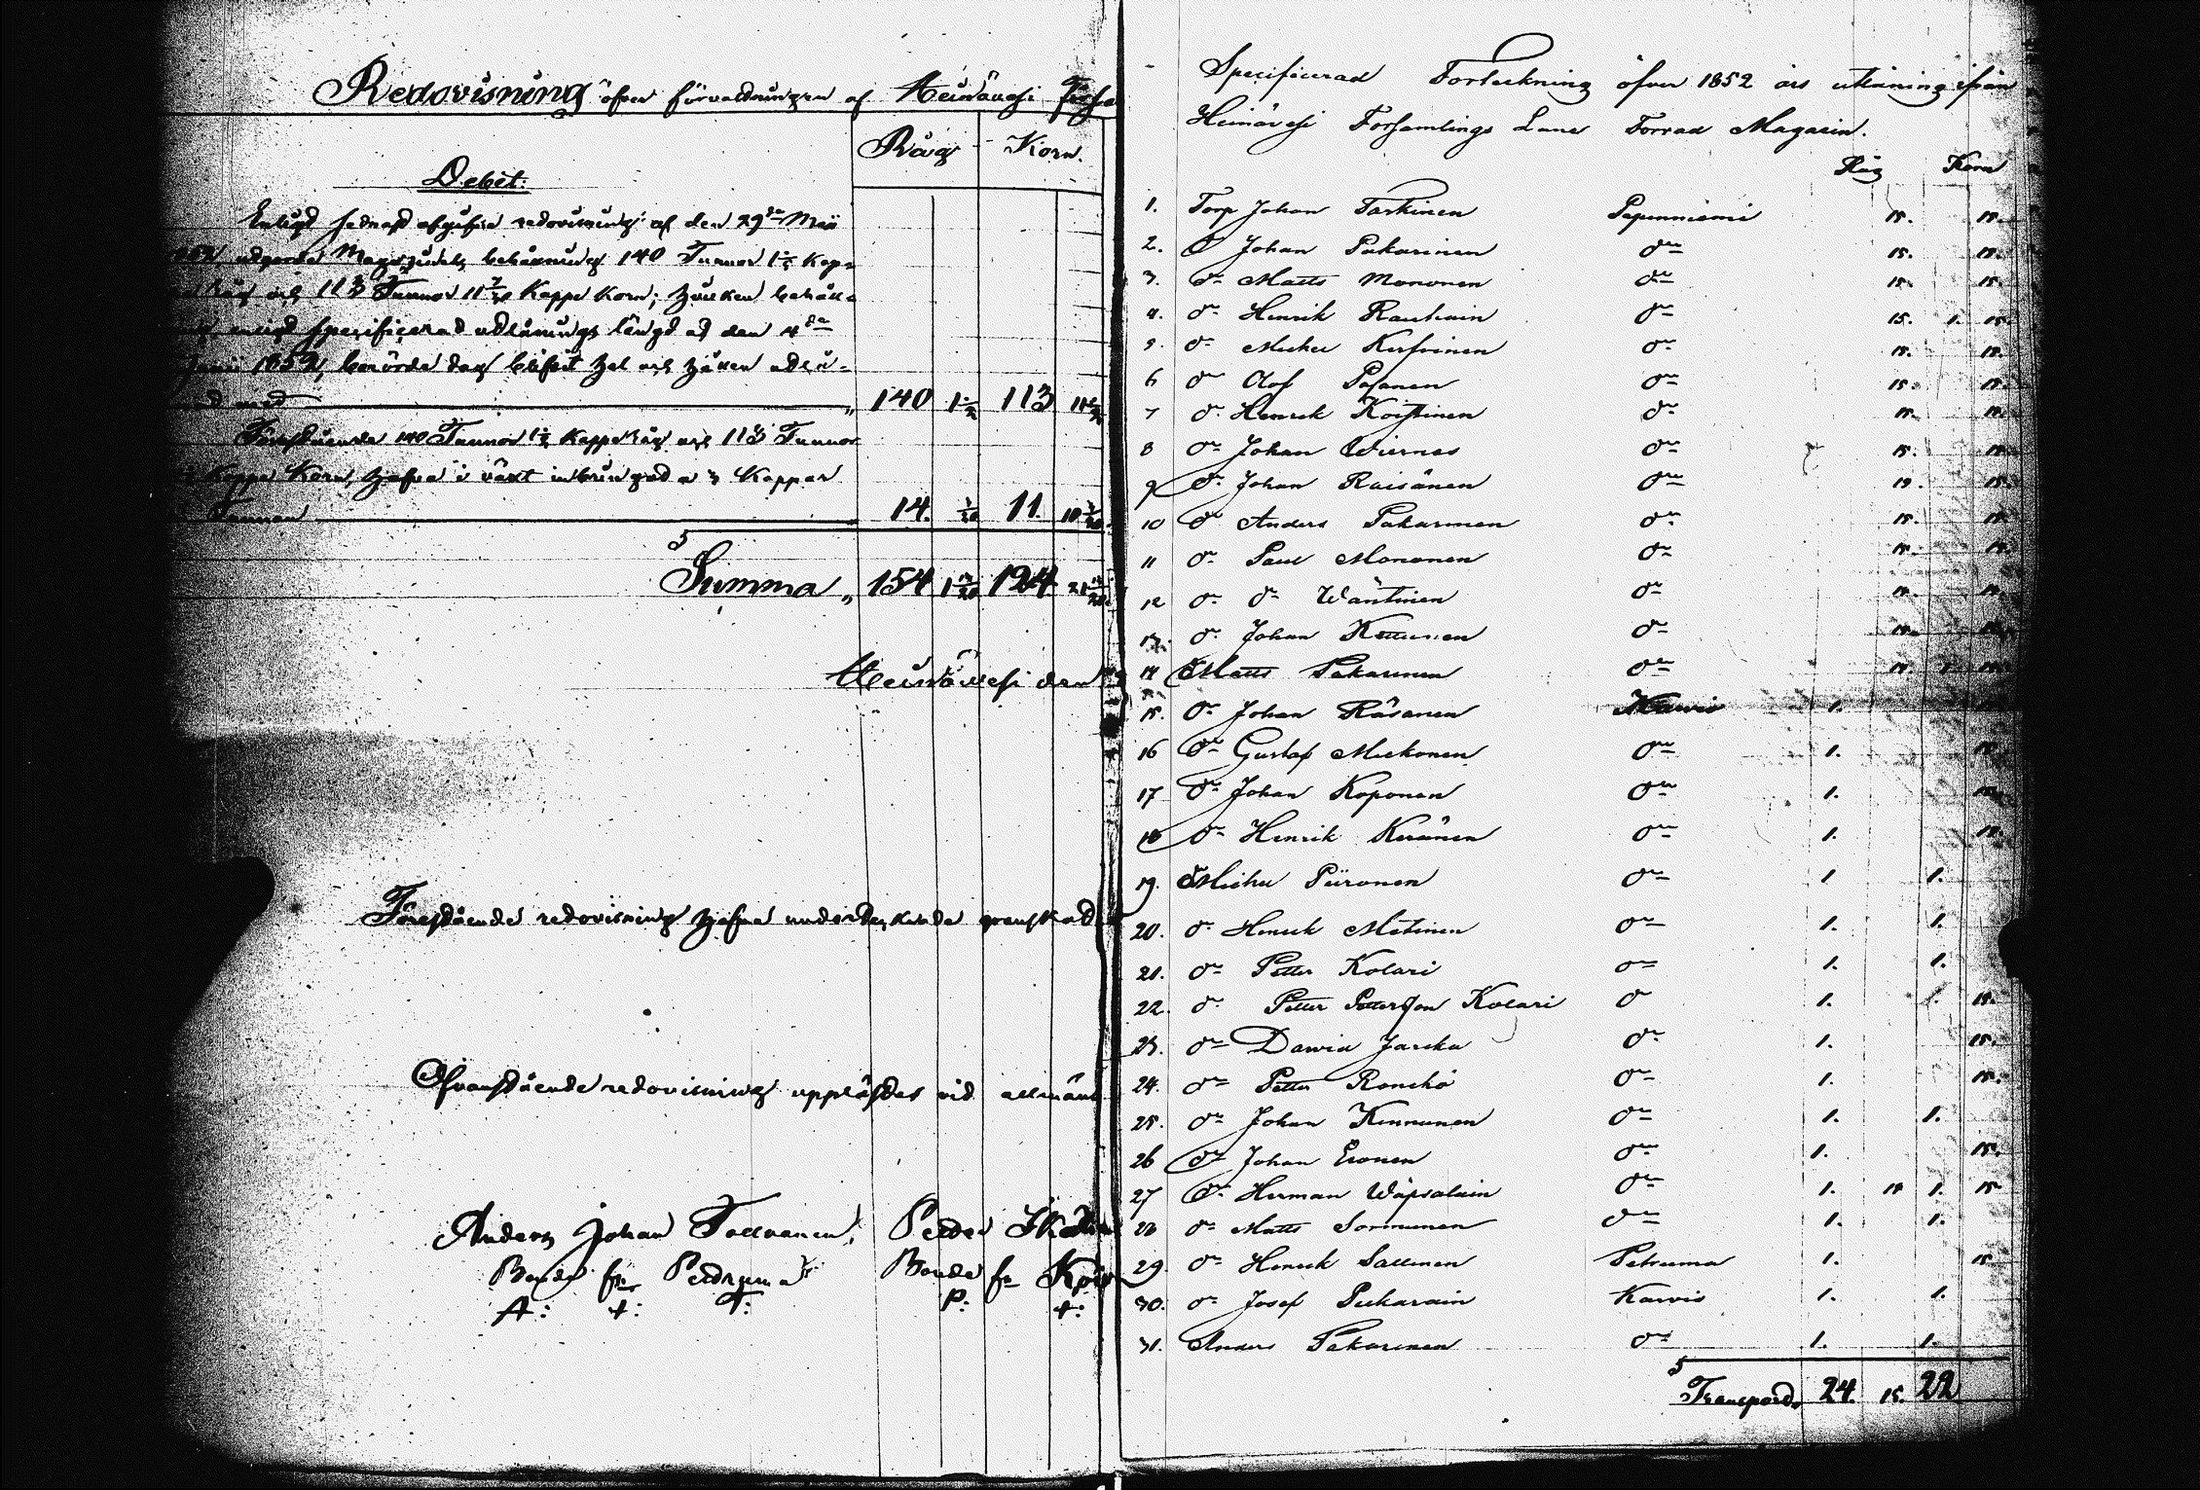 Redovisning öfver förvaltningen af Heinävesi
Råg Korn.
Debet:
Enligt sednast afgifne redovisning af den 29de Maii
utgorde Magazinets behållning 140 Tunnor 1 1/2 Kap-
och 113 Tunnor Kappe Korn; hvilken behåll-
enligt specificerad utlånings längd af den 4de
Junii 1852, berörde dag blifvit hel och hållen utlå-
nad med 140 1 1/2 113
Förestående 140 Tunnor 1 1/2 Kappe råg och 113 Tunnor
Kappe Korn, hafva i växt inbringad a 3 Kappar
Tunnan 14. 11.
Summa 154 124
Heinävesi den
Förestående redovisning hafva undertecknade granskad
Ofvanstående redovisning upplästes vid allmän
Anders Johan Tollvanen, Petter
Bonde fr. Bonde fr
A: t: T: P: t:
Specificerad Forteckning öfver 1852 års utlåning ifrån
Heinävesi Forsamlings Lane Forrad Magasin.
Råg Korn
1. Torp Johan Tarkinen Papinniemi 15. 15.
2. Do Johan Pakarinen Do 15. 15.
3. Do Matts Mononen Do 15. 15.
4. Do Henrik Rautiain Do 15. 1. 15.
5. Do Do 15. 15.
6 Do Olof Pasanen Do 15. 15.
7 Do Henrik Koistinen Do 15. 15.
8 Do Johan Wiernas Do 15. 15.
9 Do Johan Raisänen Do 15. 15.
10 Do Anders Pakarinen Do 15. 15.
11 Do Paul Mononen Do 15. 15.
12 Do Do Wäntinen Do 15. 15.
13. Do Johan Kettunen Do 15. 15.
14 Matts Pakarinen Do 15. 15.
15. Do Johan Räsänen Karvio 1.
16 Do Gustaf Miekonen Do 1. 15.
17 Do Johan Koponen Do 1. 15.
18 Do Henrik Keränen Do 1. 15.
19. Michel Piironen Do 1 1.
20. Do Henrik Matinen Do 1. 1.
21. Do Petter Kolari Do 1. 1.
22. Do Petter Pettersson Kolari Do 1. 15.
23. Do Dawid Do 1. 15.
24. Do Petter Ronckö Do 1. 15.
25. Do Johan Kinnunen Do 1. 1.
26 Do Johan Eronen Do 1. 15.
27 Do Herman Wäpsalain Do 1. 15 1. 15
28 Do Matts Sormunen Do 1. 1.
29. Do Henrik Sallinen Petruma 1. 15.
30. Do Josef Pukarain Karvio 1. 1.
31. Anders Pakarinen Do 1. 1.
Transport 24. 15. 22